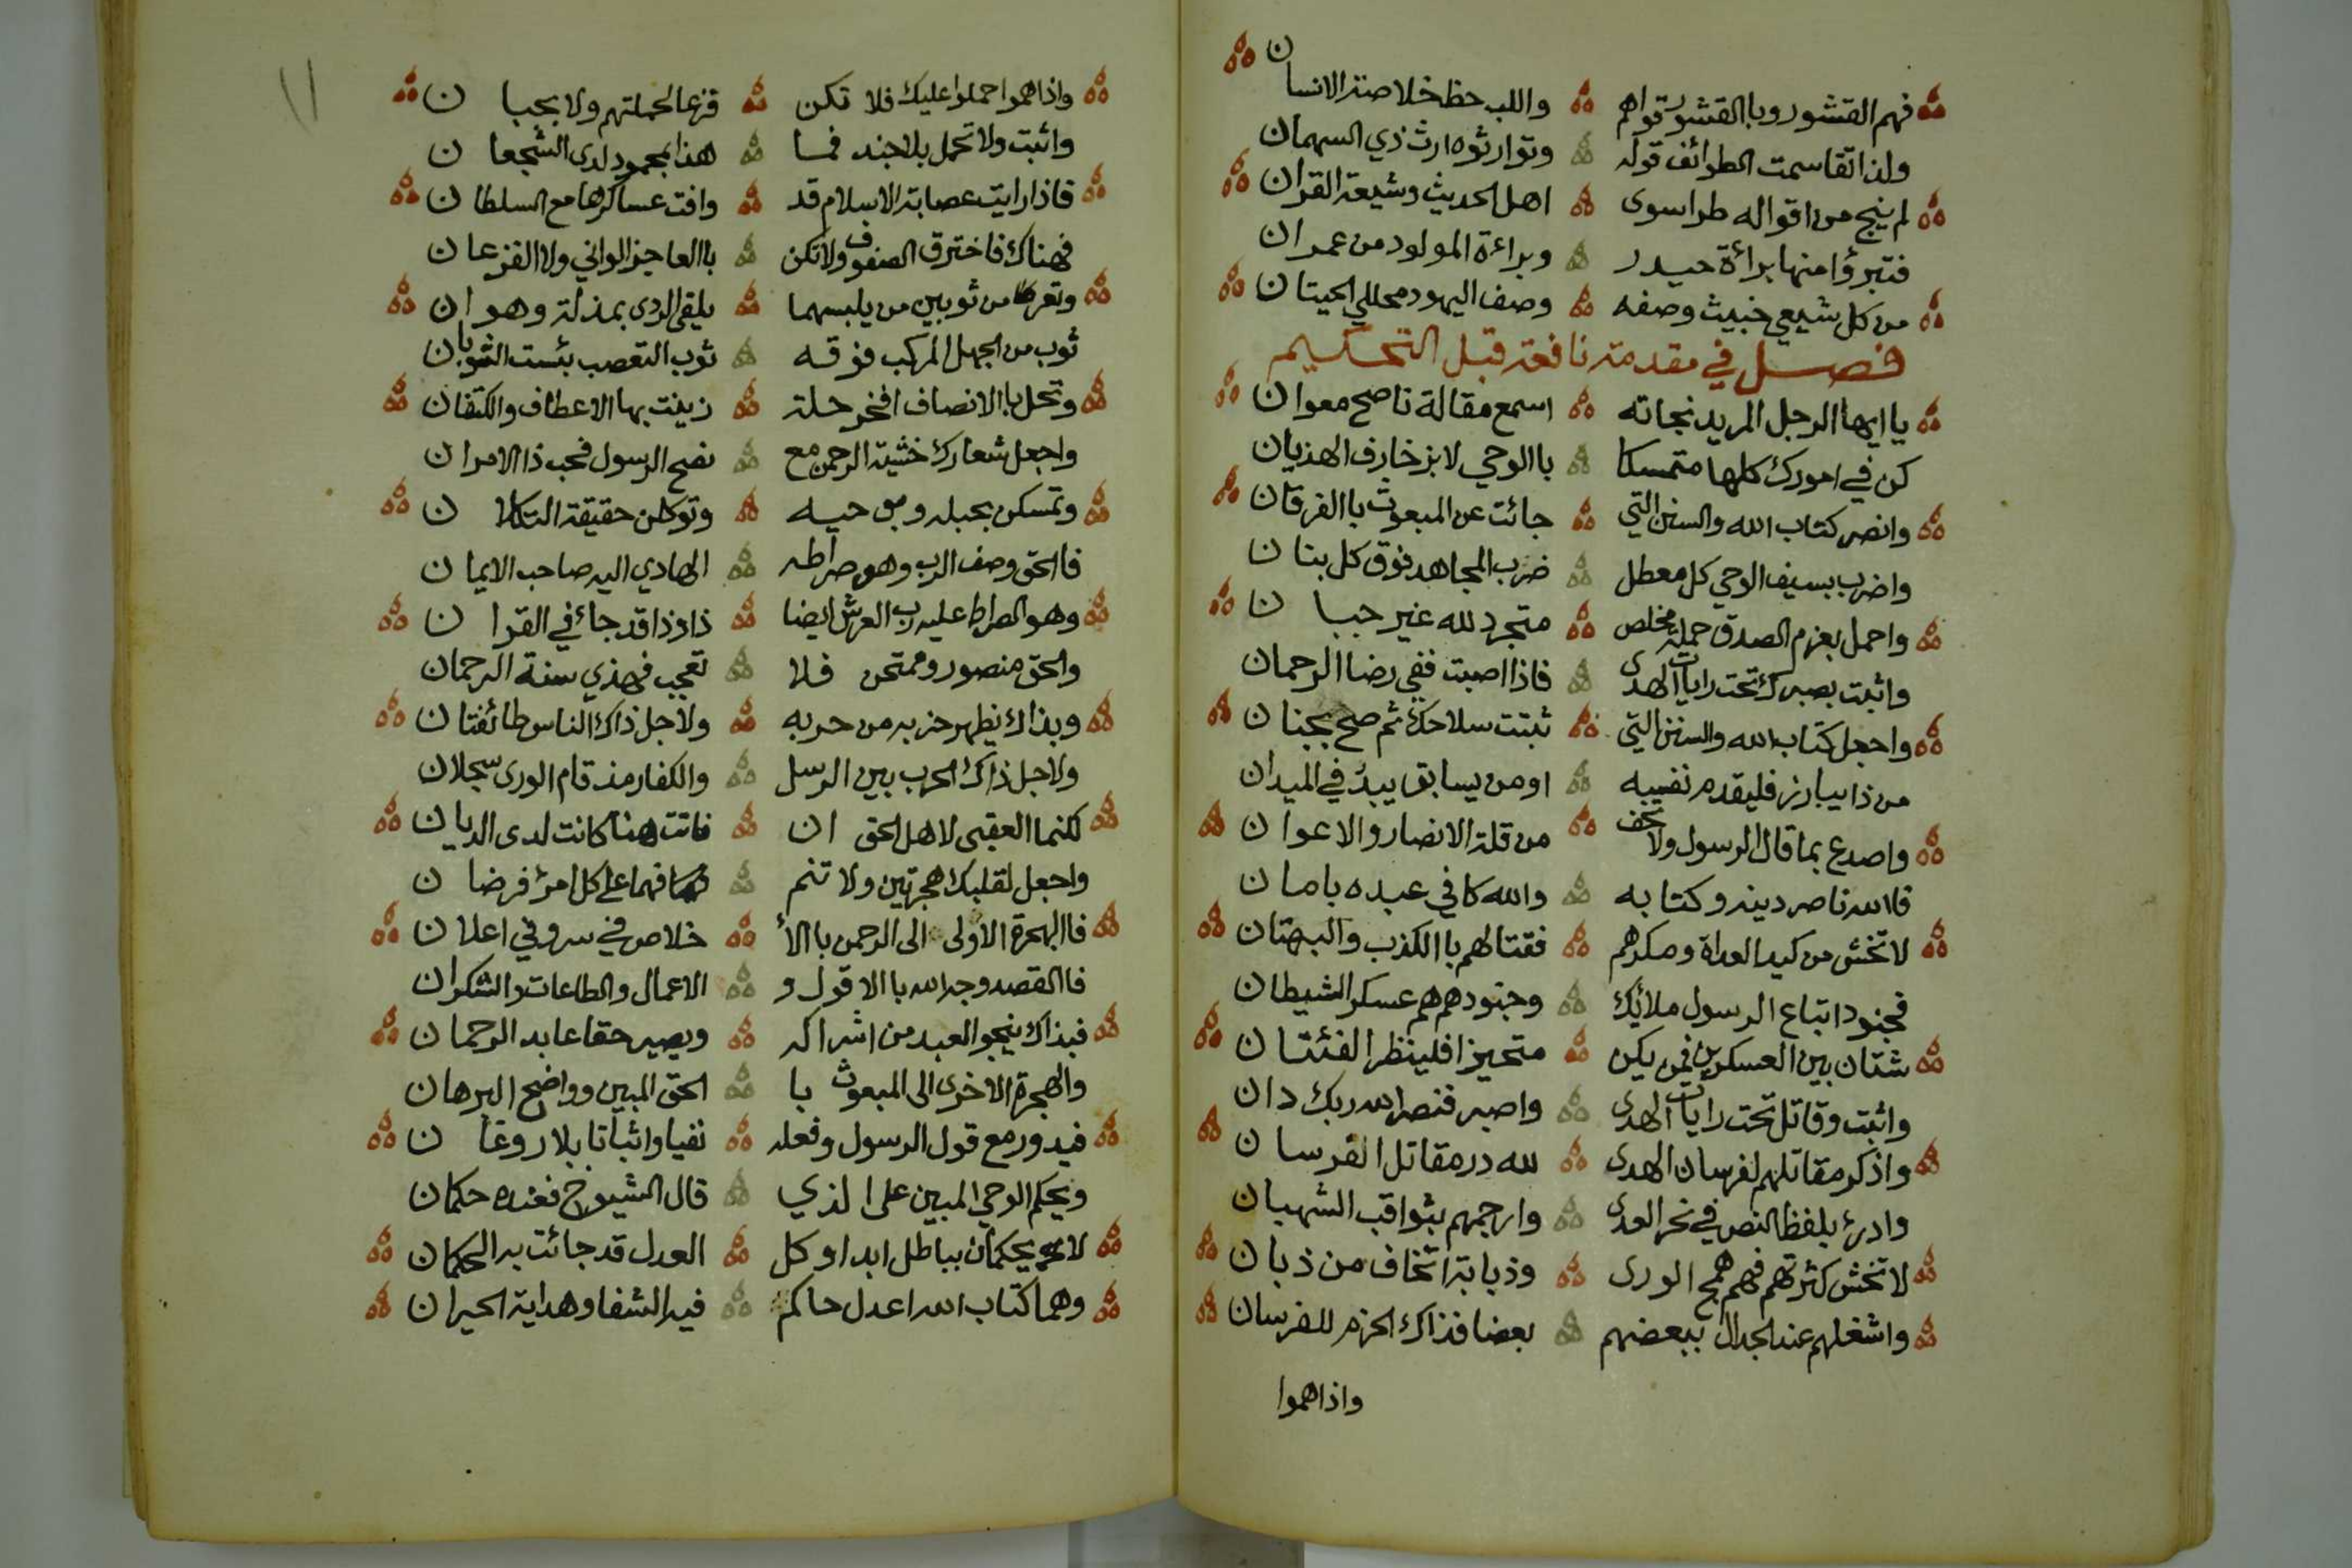 فهم القشور وبالقشور قواهم واللب حظ خلاصة الانسان
ولذا تقاسمت الطوائف قوله وتوارثوه ارث ذي السهمان
لم ينج من اقواله طرا سوى اهل الحديث وشيعة القران
فتبرؤا منها براءة حيدر وبراءة المولود من عمران
من كل شيعي خبيث وصفه وصف اليهود محللي الحيتان
فصل في مقدمة نافعة قبل التحكيم
يا ايها الرجل المريد نجاته اسمع مقالة ناصح معوان
كن في امورك كلها متمسكا باالوحي لا بزخارف الهذيان
وانصر كتاب الله والسنن التي جائت عن المبعوث باالفرقان
واضرب بسيف الوحي كل معطل ضرب المجاهد فوق كل بنان
واحمل بعزم الصدق حملة مخلص متجرد لله غير جبان
واثبت بصبرك تحت رايات الهدى فاذا اصبت ففي رضا الرحمان
واجعل كتاب الله والسنن التي ثبتت سلاحك ثم صح بجنان
من ذا يبارز فليقدم نفسه او من يسابق يبد في الميدان
واصدع بما قال الرسول ولا تخف من قلة الانصار والاعوان
فالله ناصر دينه وكتابه والله كافي عبده بامان
لا تخش من كيد العداة ومكرهم فقتالهم باالكذب والبهتان
فجنود اتباع الرسول ملائك وجنودهم هم عسكر الشيطان
شتان بين العسكرين فمن يكن متحيزا فلينظر الفئتان
واثبت وقاتل تحت رايات الهدى واصبر فنصر الله ربك دان
واذكر مقاتلهم لفرسان الهدى لله در مقاتل الفرسان
وادرئ بلفظ النص في نحر العدى وارجمهم بثواقب الشهبان
لا تخش كثرتهم فهم همج الورى وذبابة اتخاف من ذبان
واشغلهم عند الجدال ببعضهم بعضا فذاك الحزم للفرسان
واذا هموا
١١
واذا هموا حملوا عليك فلا تكن فزعا لحملتهم ولا بجبان
واثبت ولا تحمل بلا جند فما هذا بمحمود لدى الشجعان
فاذا رايت عصابة الاسلام قد وافت عساكرها مع السلطان
فهناك فاخترق الصفوف ولا تكن باالعاجز الواني ولا الفزعان
وتعر من ثوبين من يلبسهما يلقى الردى بمذلة وهوان
ثوب من الجهل المركب فوقه ثوب التعصب بئست الثوبان
وتحل باالانصاف افخر حلة زينت بها الاعطاف والكتفان
واجعل شعارك خشية الرحمن مع نصح الرسول فحبذا الامران
وتمسكن بحبله وبوحيه وتوكلن حقيقة التكلان
فاالحق وصف الرب وهو صراطه الهادي اليه صاحب الايمان
وهو الصراط عليه رب العرش ايضا ذا وذا قد جائ في القران
والحق منصور وممتحن فلا تعجب فهذي سنة الرحمان
وبذاك يظهر حزبه من حربه ولاجل ذاك الناس طائفتان
ولاجل ذاك الحرب بين الرسل والكفار مذ قام الورى سجلان
لكنما العقبى لاهل الحق ان فاتت هنا كانت لدى الديان
واجعل لقلبك هجرتين ولا تنم فهما على كل امرئ فرضان
فاالهجرة الاولى الى الرحمن باالا خلاص في سر وفي اعلان
فاالقصد وجه الله باالاقول و الاعمال والطاعات والشكران
فبذاك ينجو العبد من اشراكه ويصير حقا عابد الرحمان
والهجرة الاخرى الى المبعوث با الحق المبين وواضح البرهان
فيدور مع قول الرسول وفعله نفيا واثباتا بلا روغان
ويحكم الوحي المبين على الذي قال الشيوخ فعنده حكمان
لا يحكمان بباطل ابدا وكل العدل قد جائت به الحكمان
وهما كتاب الله اعدل حاكم فيه الشفا وهداية الحيران